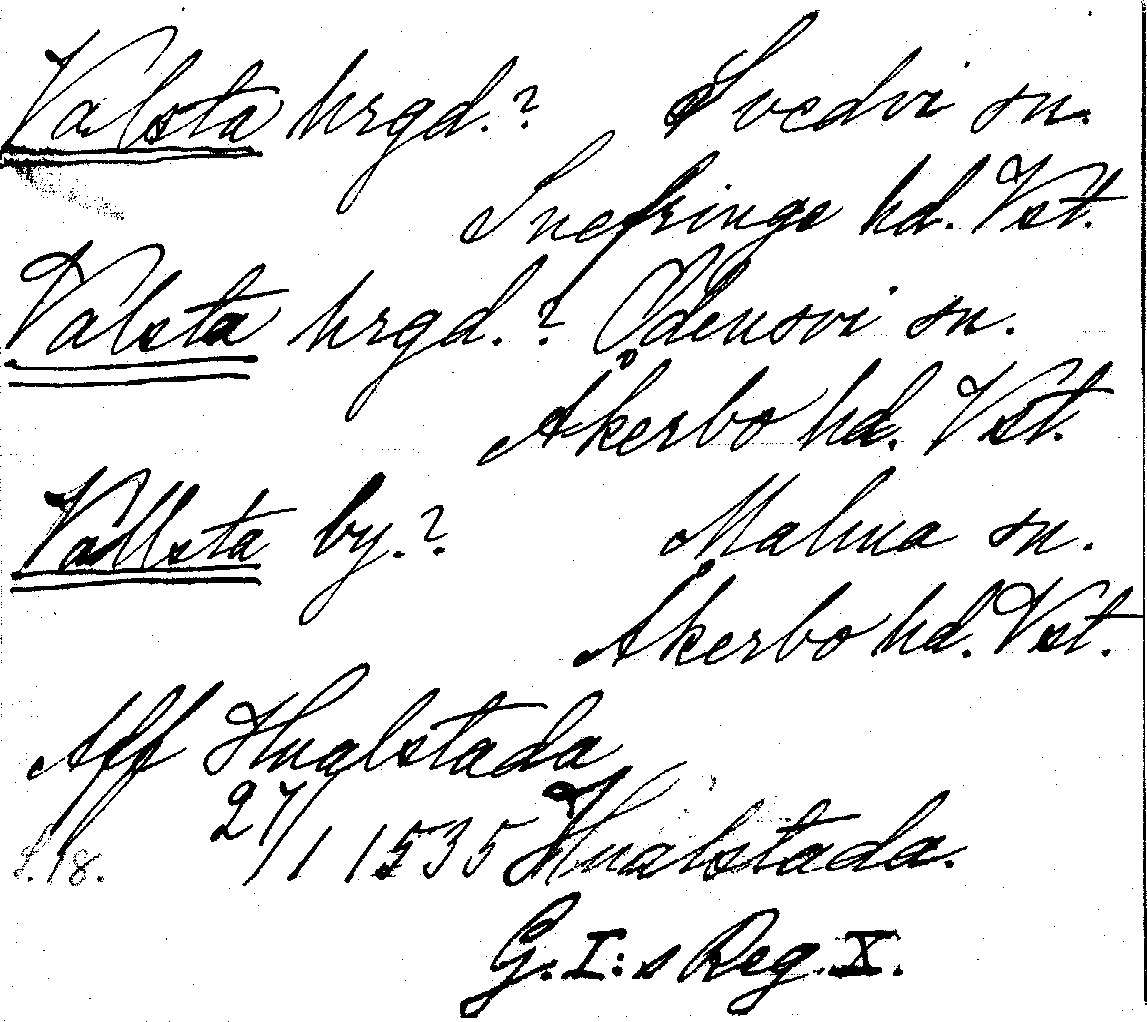 Valsta hrgd.? Svedvi sn.
Snefringe hd. Vst.
Valsta hrgd.? Odensvi sn.
Åkerbo hd. Vst.
Vallsta by.? Malma sn.
Åkerbo hd. Vst.
Aff Hualstada
27/1 1535 Hualstada.
s. 18.
G. I:s Reg. X.